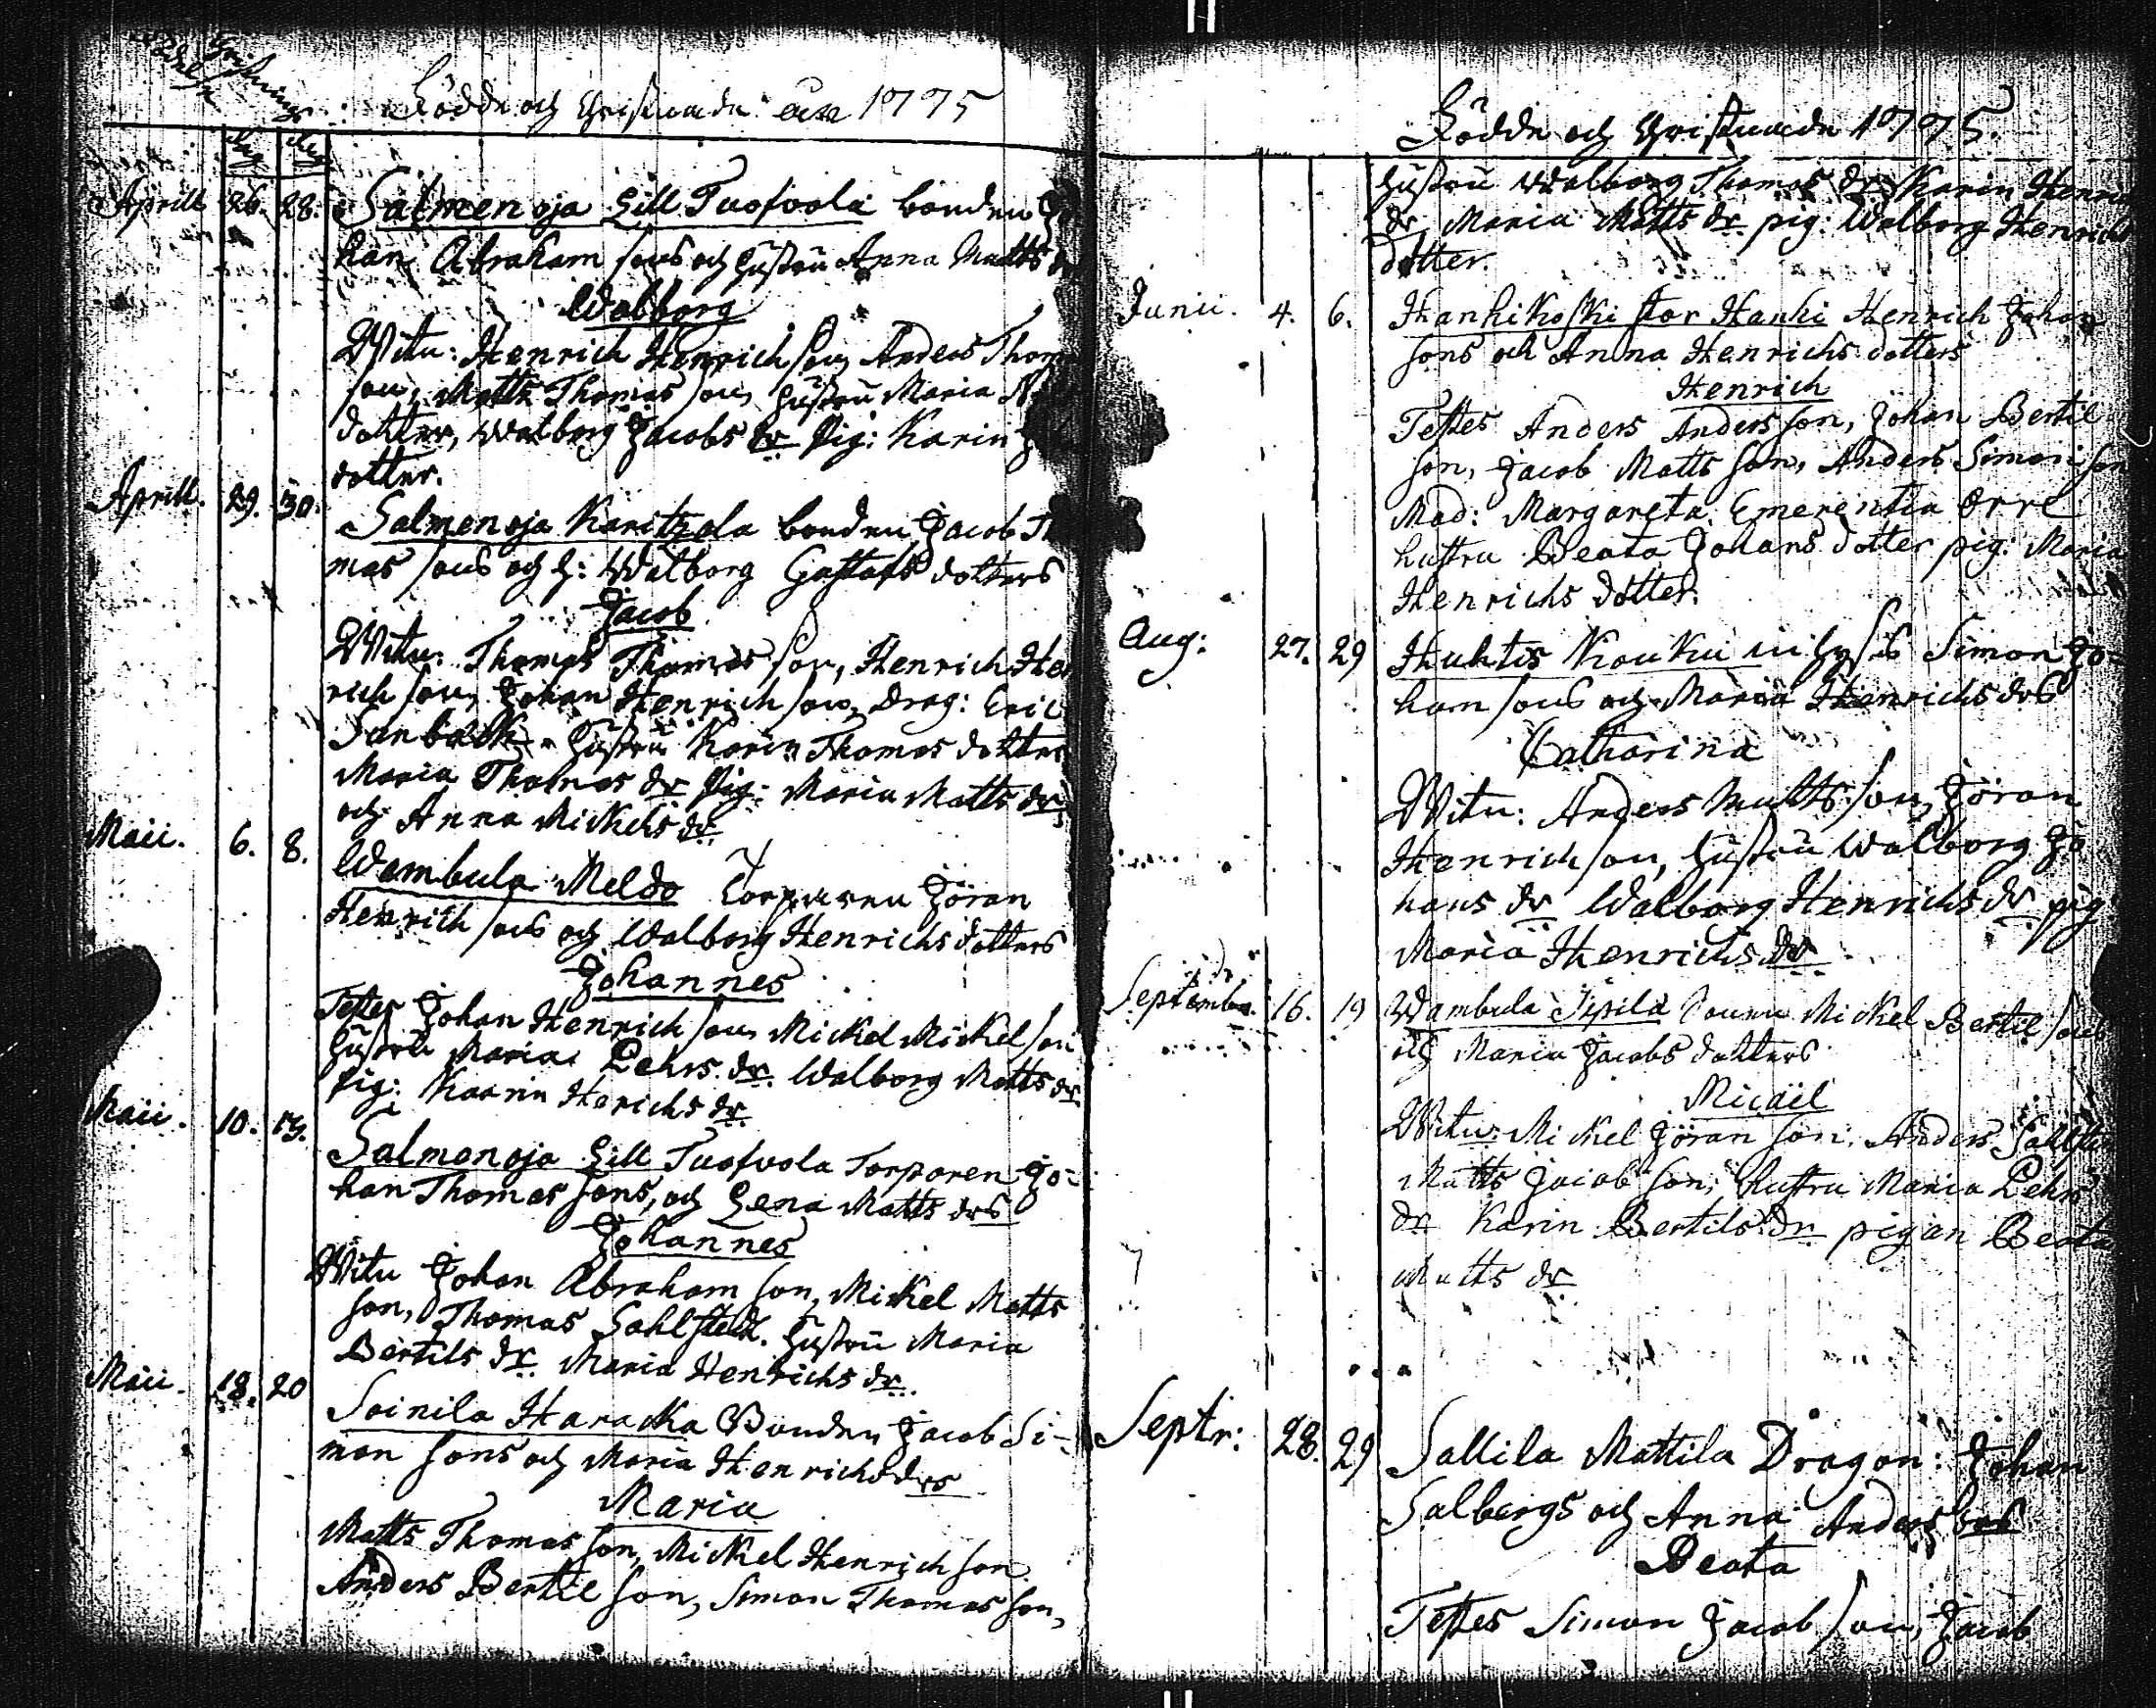 Födelse Christnings
Födde och Christnade åhr 1775
dag dag
Aprill 26. 28. Salmenoja Lill Tuofvola bonden Jo
han Abraham sons och hustru Anna Matts dr
Walborg
Witn: Henrich Henrich son, Anders Thom
son, Matts Thomas son, hustru Maria
dotter, Walborg Jacobs dr Pig: Karin
dotter.
Aprill. 29. 30. Salmenoja Karitzola bonden Jacob Th
mas sons och h: Walborg Gustafs dotters
Jacob
Witn: Thomas Thomas son, Henrich Hen
rich son, Johan Henrich son, Drag: Eric
Sanbäck. hustru Karin Thomas dotter
Maria Thomas dr Pig: Maria Matts dr
och Anna Mickels dr
Maii. 6. 8. Wambula Meldo Torparen Jöran
Henrich sons och Walborg Henrichs dotters
Johannes
Testes Johan Henrich son, Mickel Mickel son
hustru Maria Pehrs dr. Walborg Matts dr
Pig: Kaarin Herichs dr
Maii. 10. 13. Salmenoja Lill Tuofvola Torparen Jo-
han Thomas sons, och Lena Matts drs
Johannes
Witn Johan Abraham son, Mickel Matts
son, Thomas Sahlstedt. hustru Maria
Bertils dr Maria Henrichs dr.
Maii. 18. 20 Soinila Haracka Bonden Jacob Si-
mon sons och Maria Henrichs drs
Maria
Matts Thomas son, Mickel Henrich son
Anders Bertil son, Simon Thomas son,
Födde och Christnade 1775.
hustru Walborg Thomas dr Karin Henric
dr. Maria Matts dr pig: Walborg Henrichs
dotter.
Junii. 4. 6. Hanhikoski stor Hanhi Henrich Johan
sons och Anna Henrichs dotters
Henrich
Testes Anders Anders son, Johan Bertil
son, Jacob Matts son, Anders Simon son
Mad: Margareta Emerentia Orre
hustru Beata Johans dotter pig: Maria
Henrichs dotter.
Aug: 27. 29 Huhtis Kouku inhyses Simon Jo-
han sons och Maria Henrichs drs
Catharina
Witn: Anders Matts son, Jöran
Henrich son, hustru Walborg Jo
hans dr Walborg Henrichs dr pig
Maria Henrichs dr
Septembr. 16. 19 Wambula Sipilä Sonen Mickel Bertil sons
och Maria Jacobs dotters
Micaël
Witn: Mickel Jöran son, Anders
Matts Jacob son, hustru Maria Pehrs
dr Karin Bertils dr pigan Beata
Matts dr
Septr: 28. 29 Sallila Mattila Dragon: Johan
Salbergs och Anna Anders drs
Beata
Testes Simon Jacob son, Jacob